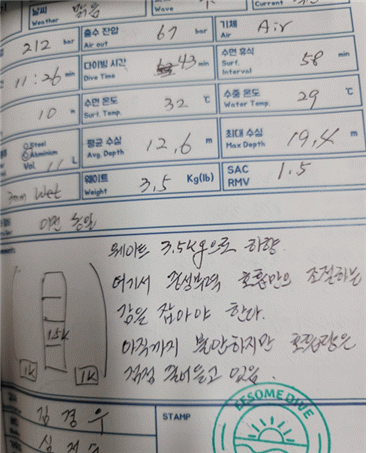 날씨 Weather 맑음 Wave Current
212 bar 출수 잔압 Air out 67 bar 기체 Air Air
11:26 min 다이빙 시간 Dive Time 43 min 수면 휴식 Surf. Interval 58 min
10 m 수면 온도 Surf. Temp. 32 ℃ 수중 온도 Water Temp. 29 ℃
Steel Aluminium Vol. 11 L 평균 수심 Avg. Depth 12,6 m 최대 수심 Max Depth 19,4 m
3mm Wet 웨이트 Weight 3,5 Kg(lb) SAC RMV 1.5
이전 동일
웨이트 3.5kg으로 하향.
여기서 중성부력 호흡만으로 조절하는
감을 잡아야 한다.
아직까지 불안하지만 호흡량은
점점 줄어들고 있음.
1.5k
1k 1k
김경우
STAMP
EESOME DIVE